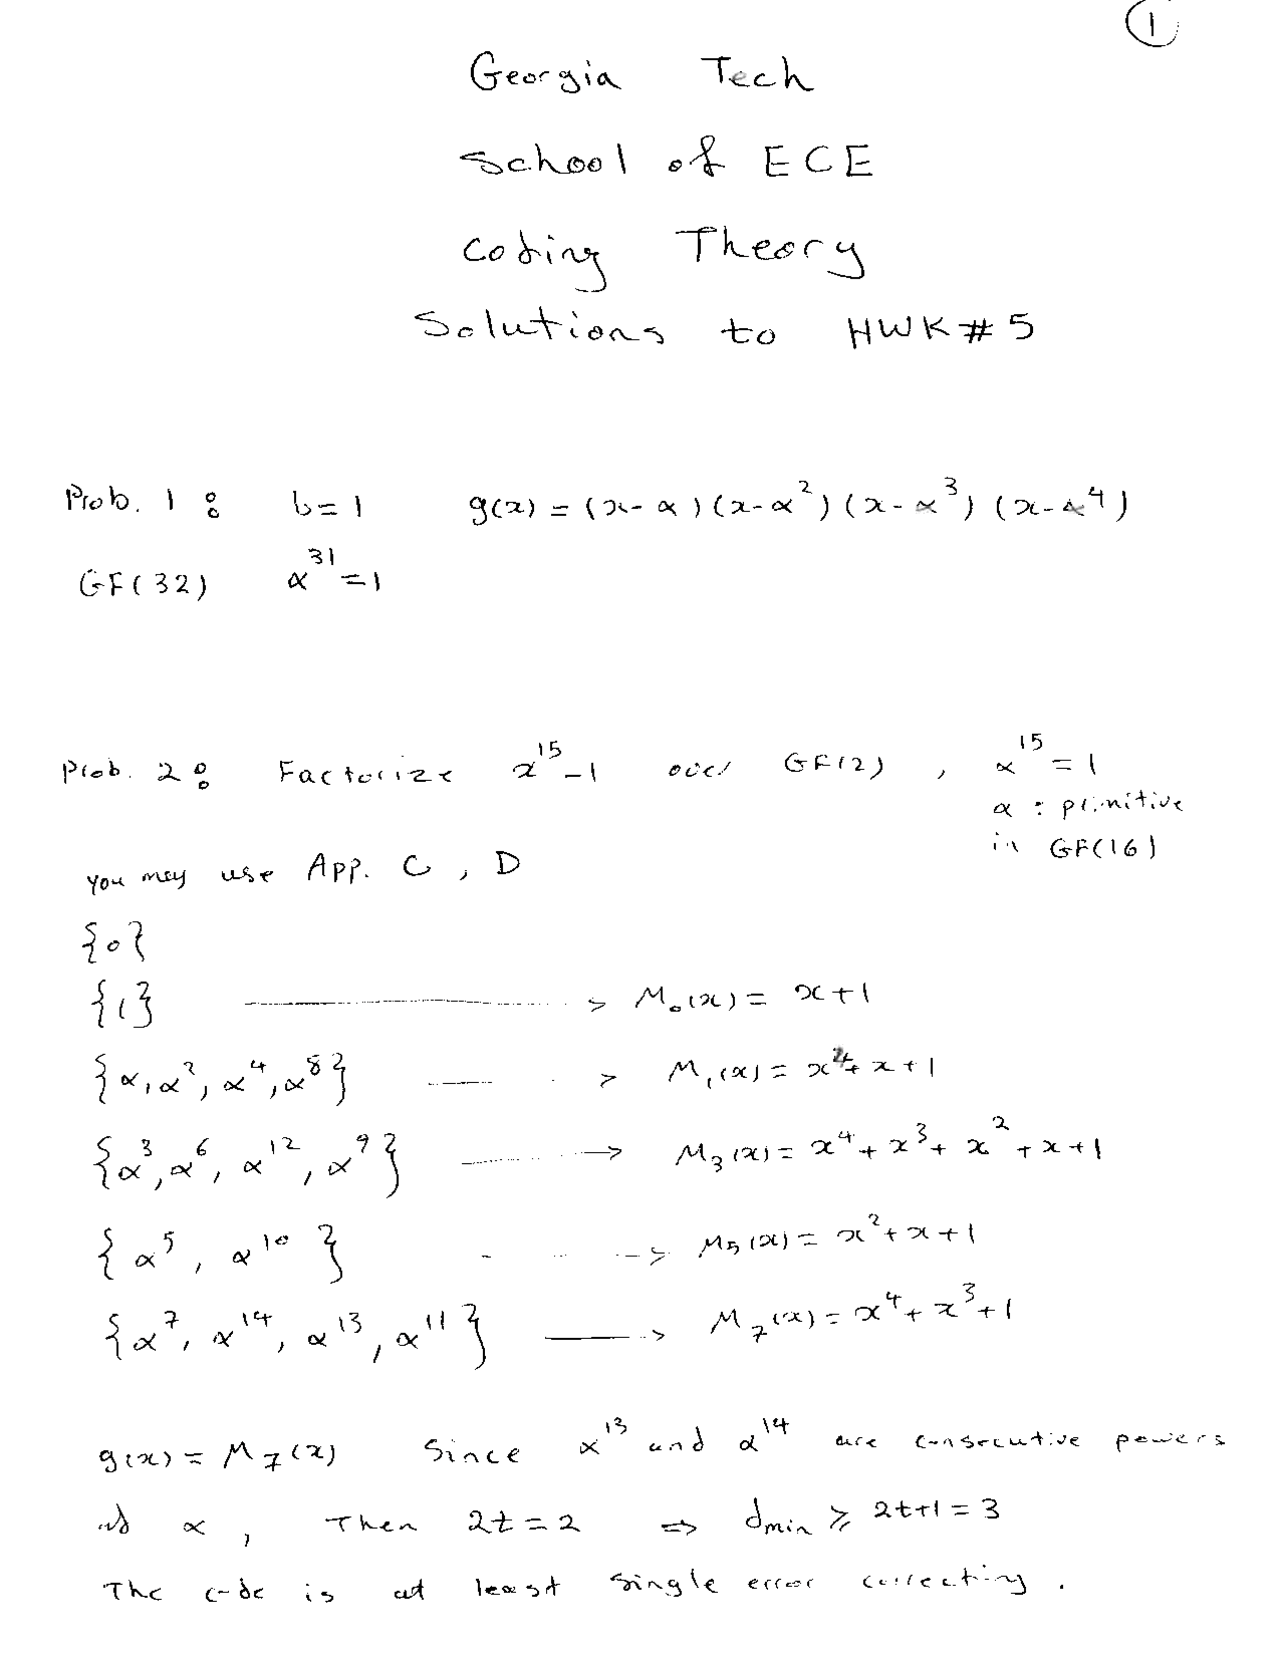 ①
Georgia Tech
School of ECE
Coding Theory
Solutions to HWK#5
Prob. 1: b=1 g(x) = (x-α)(x-α²)(x-α³)(x-α⁴)
GF(32) α³¹=1
Prob. 2: Factorize x¹⁵-1 over GF(2), α¹⁵=1
α: primitive
in GF(16)
You may use App. C, D
{0}
{1} → M₀(x) = x+1
{α, α², α⁴, α⁸} → M₁(x) = x⁴+x+1
{α³, α⁶, α¹², α⁹} → M₃(x) = x⁴+x³+x²+x+1
{α⁵, α¹⁰} → M₅(x) = x²+x+1
{α⁷, α¹⁴, α¹³, α¹¹} → M₇(x) = x⁴+x³+1
g(x) = M₇(x) Since α¹³ and α¹⁴ are consecutive powers
of α, Then 2t=2 ⇒ dmin ≥ 2t+1 = 3
The code is at least single error correcting.